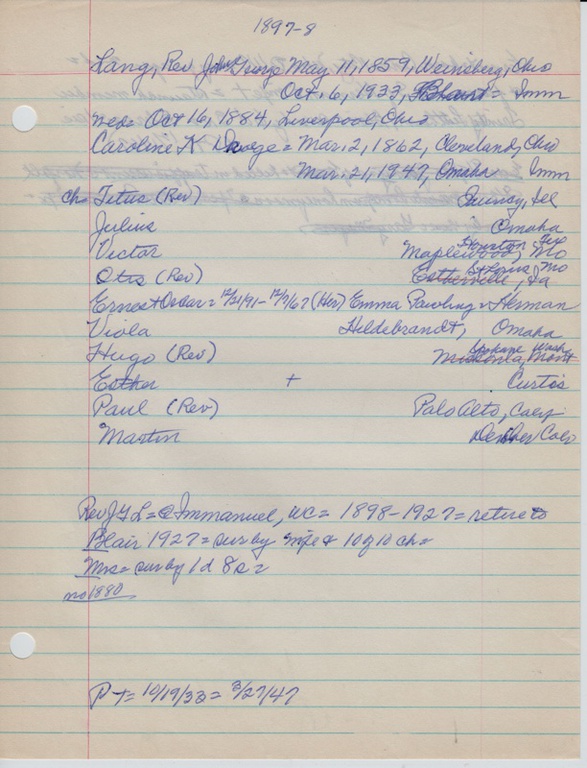 1897-8
Lang, Rev John George May 11, 1859, Weinsberg, Ohio
Oct. 6, 1933, Blair = Imm
med= Oct 16, 1884, Liverpool, Ohio
Caroline K = Mar. 2, 1862, Cleveland, Ohio
Mar. 21, 1947, Omaha Imm
ch Titus (Rev) Quincy, Ill
Julius Omaha
Houston Tex
Victor Maplewood, Mo
St Louis Mo
Otis (Rev) Estherville, Ia
Ernest Oscar = 12/21/91 - 12/7/67 (Her) Emma Pawling - Herman
Viola Hildebrandt, Omaha
Spokane Wash
Hugo (Rev) Missoula, Mont
Esther + Curtis
Paul (Rev) Palo Alto, Calif
Martin Denver Colo
Rev J G L = @ Immanuel, WC = 1898-1927 = retire to
Blair 1927 = sur by wife & 10 of 10 ch =
Mrs = sur by 1 d 8 s =
no 1880
P T = 10/19/33 = 3/27/47